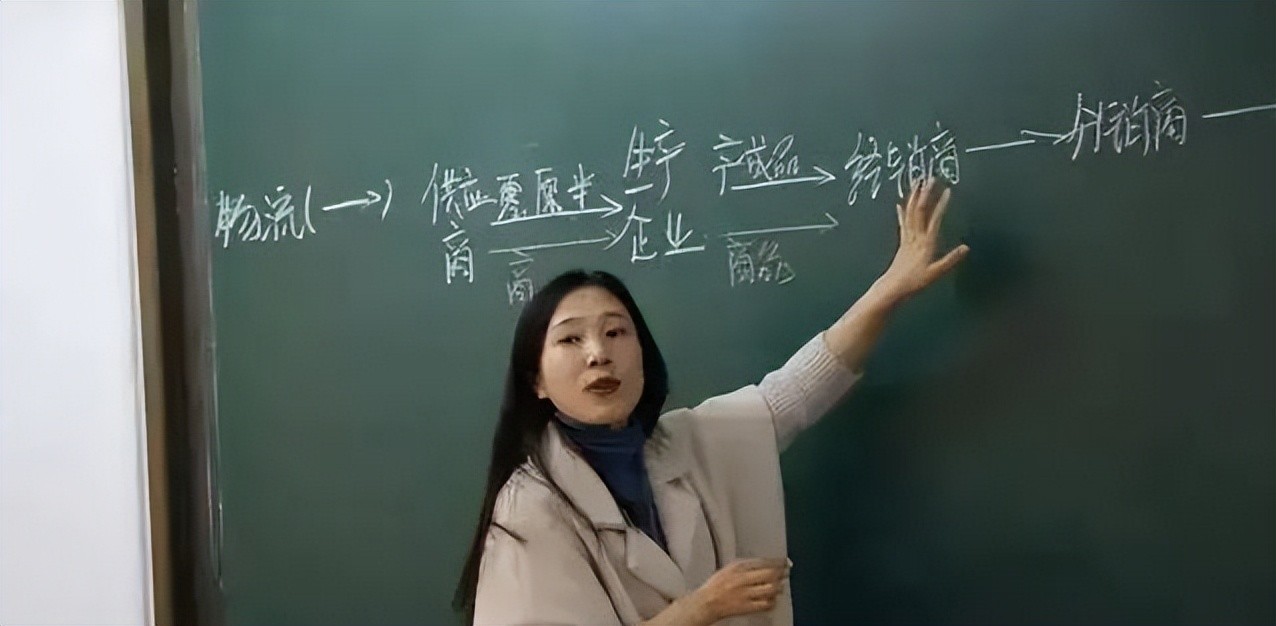 物流(→) 供应 原半→ 生产 产成品→ 经销商 → 分销商 →
商 → 企业 →
商 商流